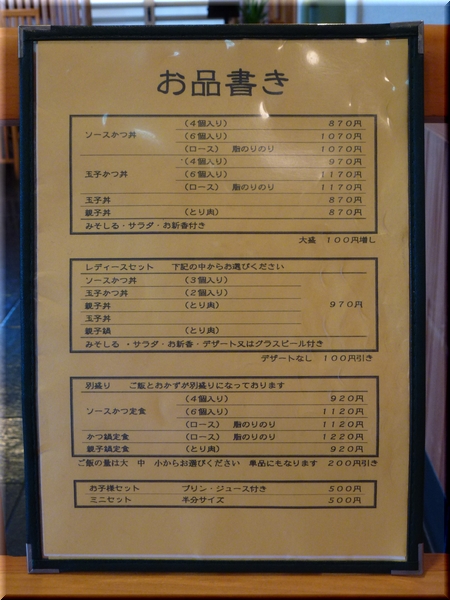 お品書き
ソースかつ丼 (4個入り) 870円
(6個入り) 1070円
(ロース) 脂のりのり 1070円
玉子かつ丼 (4個入り) 970円
(6個入り) 1170円
(ロース) 脂のりのり 1170円
玉子丼 870円
親子丼 (とり肉) 870円
みそしる・サラダ・お新香付き
大盛 100円増し
レディースセット 下記の中からお選びください
ソースかつ丼 (3個入り)
玉子かつ丼 (2個入り)
親子丼 (とり肉) 970円
玉子丼
親子鍋 (とり肉)
みそしる・サラダ・お新香・デザート又はグラスビール付き
デザートなし 100円引き
別盛り ご飯とおかずが別盛りになっております
ソースかつ定食 (4個入り) 920円
(6個入り) 1120円
(ロース) 脂のりのり 1120円
かつ鍋定食 (ロース) 脂のりのり 1220円
親子鍋定食 (とり肉) 920円
ご飯の量は大 中 小からお選びください 単品にもなります 200円引き
お子様セット プリン・ジュース付き 500円
ミニセット 半分サイズ 500円